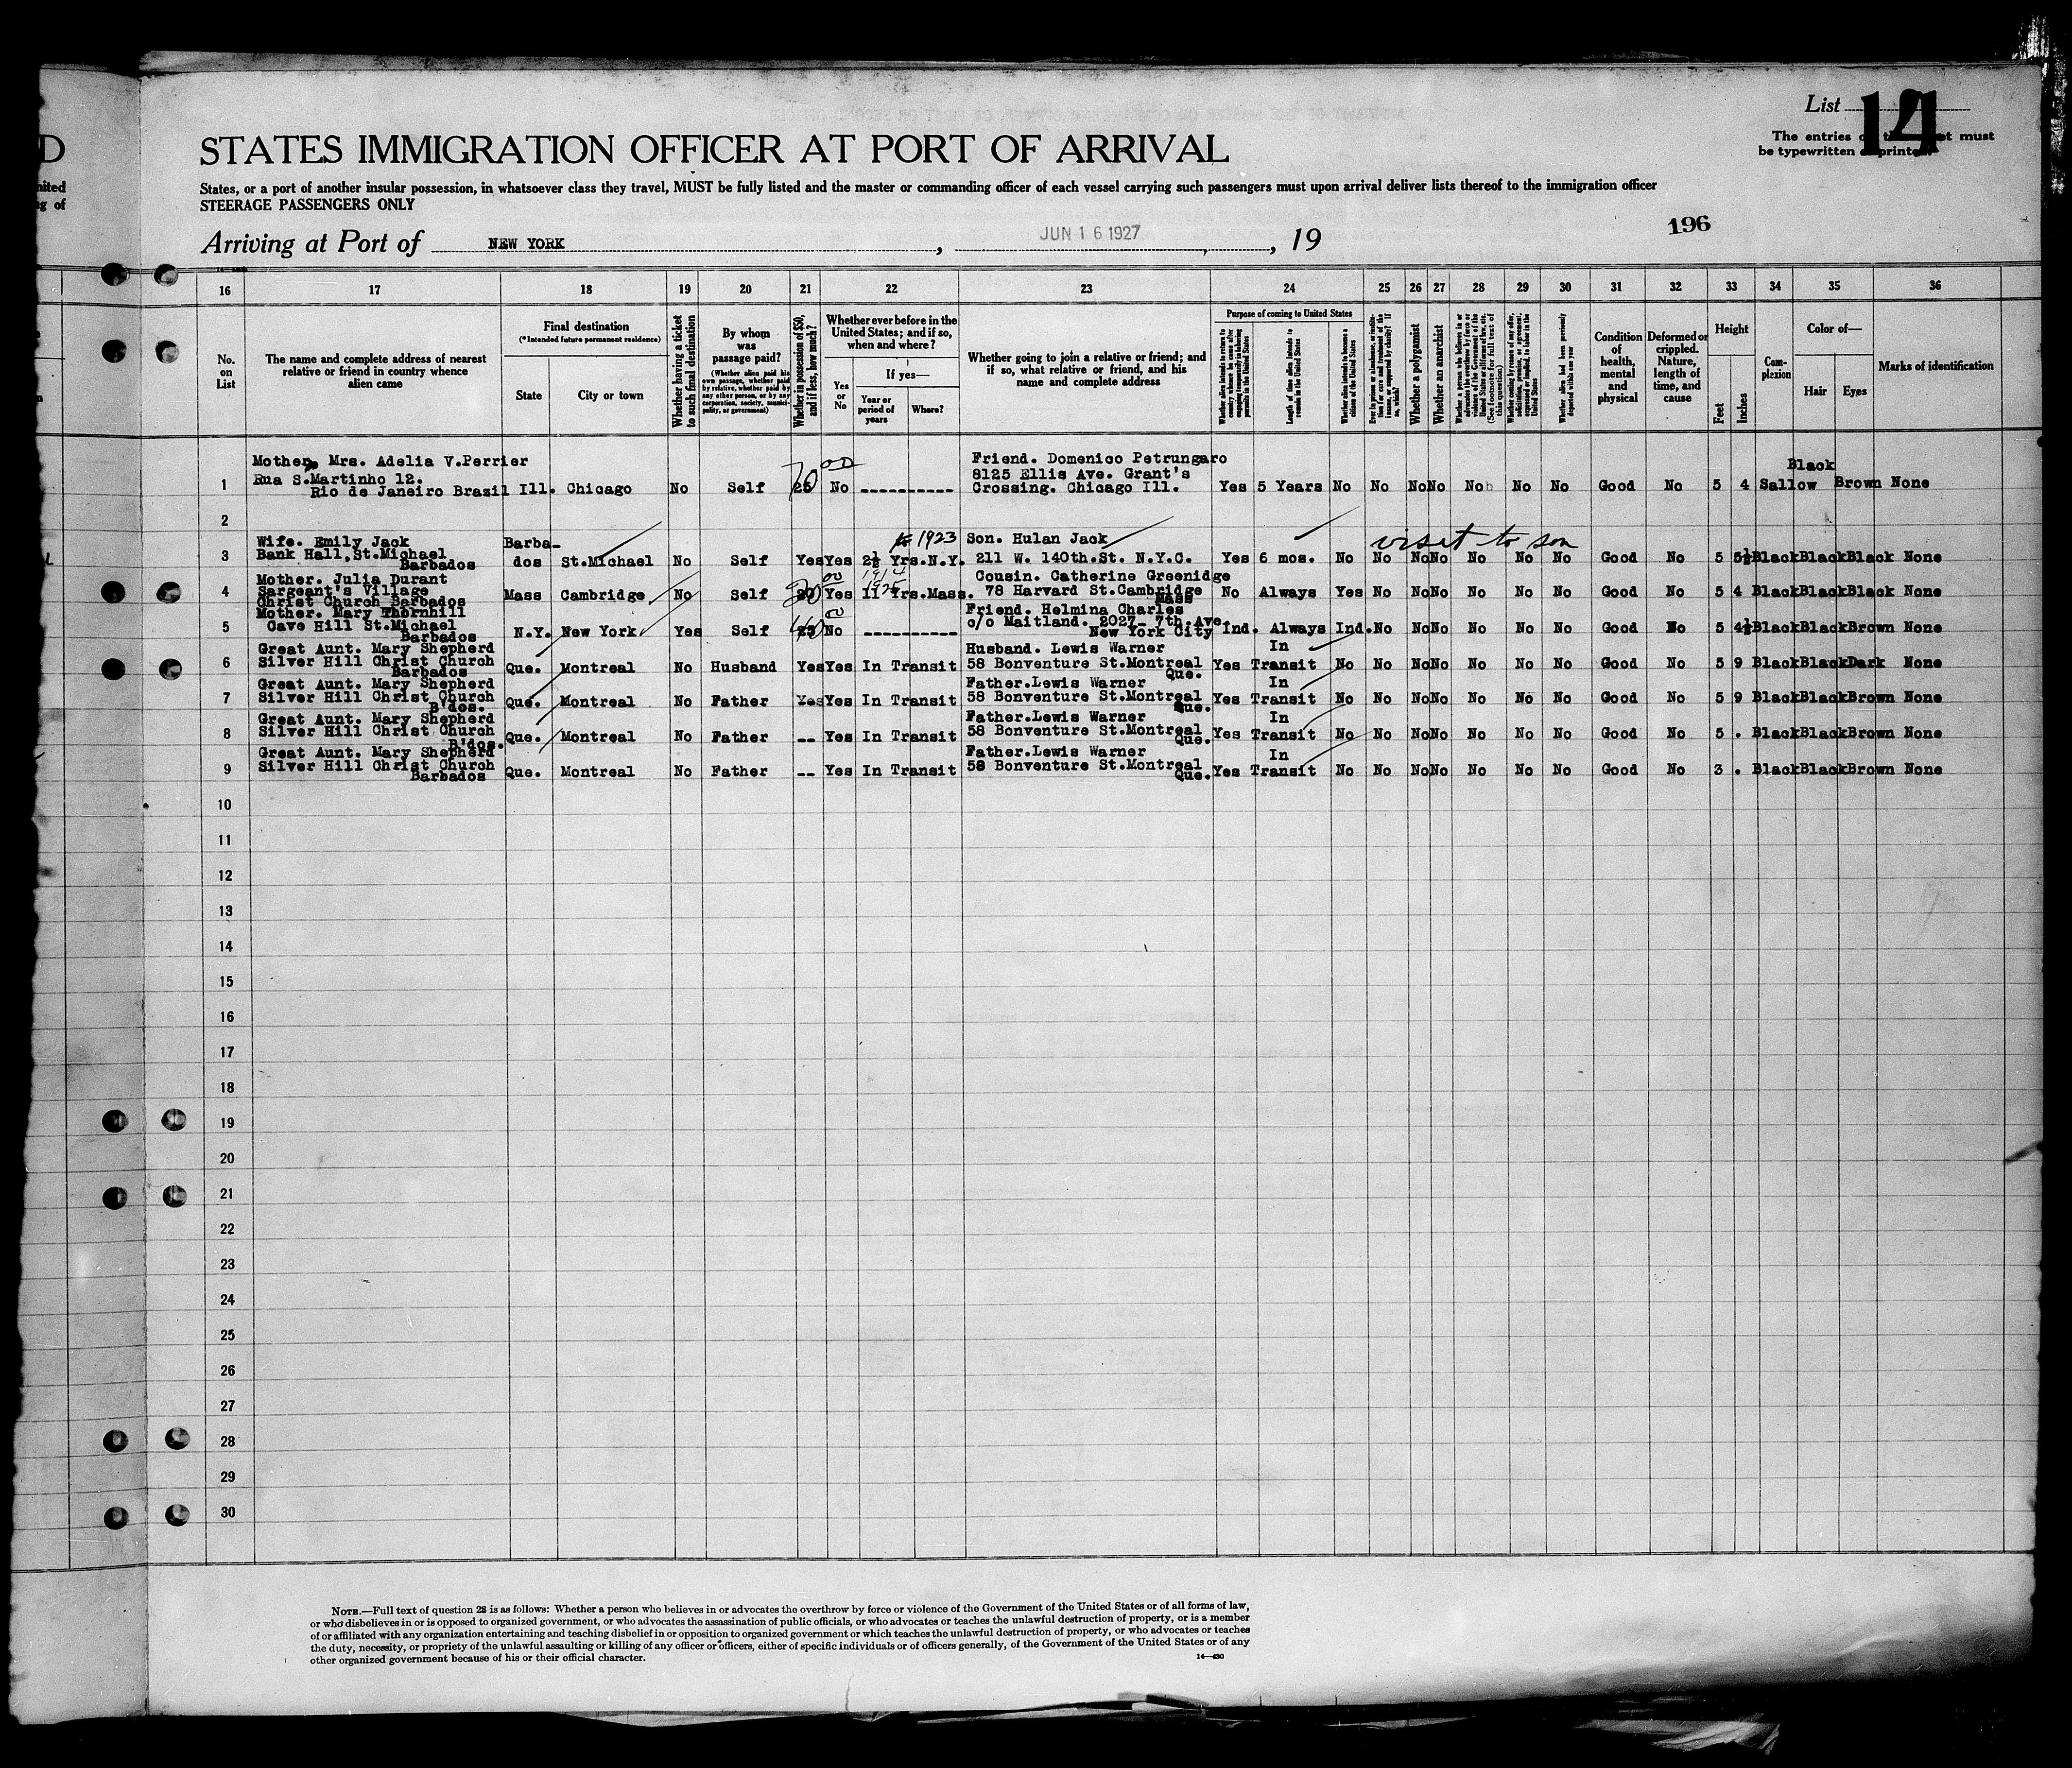 List 14
The entries on this sheet must
be typewritten or printed.
D
nited
g of
STATES IMMIGRATION OFFICER AT PORT OF ARRIVAL
States, or a port of another insular possession, in whatsoever class they travel, MUST be fully listed and the master or commanding officer of each vessel carrying such passengers must upon arrival deliver lists thereof to the immigration officer
STEERAGE PASSENGERS ONLY
196
Arriving at Port of NEW YORK, JUN 16 1927, 19
16 17 18 19 20 21 22 23 24 25 26 27 28 29 30 31 32 33 34 35 36
No. on List
The name and complete address of nearest relative or friend in country whence alien came
Final destination
(*Intended future permanent residence)
State
City or town
Whether having a ticket to such final destination
By whom was passage paid?
(Whether alien paid his own passage, whether paid by relative, whether paid by any other person, or by any corporation, society, municipality, or government)
Whether in possession of $50, and if less, how much?
Whether ever before in the United States; and if so, when and where?
Yes or No
If yes—
Year or period of years
Where?
Whether going to join a relative or friend; and if so, what relative or friend, and his name and complete address
Purpose of coming to United States
Whether alien intends to return to country whence he came after engaging temporarily in laboring pursuits in the United States
Length of time alien intends to remain in the United States
Whether alien intends to become a citizen of the United States
Ever in prison or almshouse, or institution for care and treatment of the insane, or supported by charity? If so, which?
Whether a polygamist
Whether an anarchist
Whether a person who believes in or advocates the overthrow by force or violence of the Government of the United States or all forms of law, etc. (See footnote for full text of this question)
Whether coming by reason of any offer, solicitation, promise, or agreement, expressed or implied, to labor in the United States
Whether alien had been previously deported within one year
Condition of health, mental and physical
Deformed or crippled. Nature, length of time, and cause
Height
Feet
Inches
Complexion
Color of—
Hair
Eyes
Marks of identification
Mother. Mrs. Adelia V.Perrier Friend. Domenico Petrungaro
Rua S.Martinho 12. 70 00 8125 Ellis Ave. Grant's Black
1 Rio de Janeiro Brazil Ill. Chicago No Self 25 No ---------- Crossing. Chicago Ill. Yes 5 Years No No No No No No No Good No 5 4 Sallow Brown None
2
Wife. Emily Jack Barba- 1923 Son. Hulan Jack visit to son
3 Bank Hall,St.Michael dos St.Michael No Self Yes Yes 2½ Yrs.N.Y. 211 W. 140th.St. N.Y.C. Yes 6 mos. No No No No No No No Good No 5 5½ Black Black Black None
Barbados
Mother. Julia Durant 00 1914 Cousin. Catherine Greenidge
4 Sargeant's Village Mass Cambridge No Self Yes 11 Yrs.Mass. 1925 78 Harvard St.Cambridge No Always Yes No No No No No No Good No 5 4 Black Black Black None
Christ Church Barbados Mass
Mother. Mary Thornhill 00 Friend. Helmina Charles
5 Cave Hill St.Michael N.Y. New York Yes Self 40 25 No ---------- c/o Maitland. 2027- 7th.Ave. Ind. Always Ind. No No No No No No Good No 5 4½ Black Black Brown None
Barbados New York City
Great Aunt. Mary Shepherd Husband. Lewis Warner In
6 Silver Hill Christ Church Que. Montreal No Husband Yes Yes In Transit 58 Bonventure St.Montreal Yes Transit No No No No No No No Good No 5 9 Black Black Dark None
Barbados Que.
Great Aunt. Mary Shepherd Father.Lewis Warner In
7 Silver Hill Christ Church Que. Montreal No Father Yes Yes In Transit 58 Bonventure St.Montreal Yes Transit No No No No No No No Good No 5 9 Black Black Brown None
B'dos. Que.
Great Aunt. Mary Shepherd Father.Lewis Warner In
8 Silver Hill Christ Church Que. Montreal No Father -- Yes In Transit 58 Bonventure St.Montreal Yes Transit No No No No No No No Good No 5 . Black Black Brown None
B'dos. Que.
Great Aunt. Mary Shepherd Father.Lewis Warner In
9 Silver Hill Christ Church Que. Montreal No Father -- Yes In Transit 58 Bonventure St.Montreal Yes Transit No No No No No No No Good No 3 . Black Black Brown None
Barbados Que.
10
11
12
13
14
15
16
17
18
19
20
21
22
23
24
25
26
27
28
29
30
NOTE.—Full text of question 28 is as follows: Whether a person who believes in or advocates the overthrow by force or violence of the Government of the United States or of all forms of law,
or who disbelieves in or is opposed to organized government, or who advocates the assassination of public officials, or who advocates or teaches the unlawful destruction of property, or is a member
of or affiliated with any organization entertaining and teaching disbelief in or opposition to organized government or which teaches the unlawful destruction of property, or who advocates or teaches
the duty, necessity, or propriety of the unlawful assaulting or killing of any officer or officers, either of specific individuals or of officers generally, of the Government of the United States or of any
other organized government because of his or their official character.
14—430